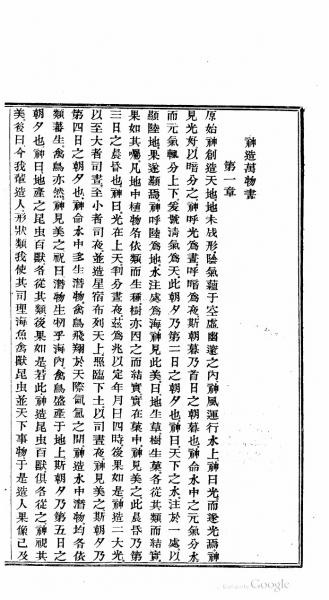 神造萬物書
第一章
原始神創造天地地未成形陰氣蘊于空虛幽邃之內神風運行水上神曰光而遂光焉神
見光好以暗分之神呼光為晝呼暗為夜斯朝暮乃首日之朝暮也神命水中之元氣分水
而元氣輒分上下爰號清氣為天此朝夕乃第二日之朝夕也神曰天下之水注於一處以
顯陸地果遂顯焉神呼陸為地水注處為海神見此美曰地生草樹生菓各從其類而結實
果如其囑凡地中植物各依類而生種樹亦因之而結實實在菓中神見美之此晨昏乃第
三日之晨昏也神曰光在上天判分晝夜茲為兆以定年月日四時後果如是神造二大光
以至大者司晝至小者司夜並造星宿布列天上照臨下土以司晝夜神見美之斯朝夕乃
第四日之朝夕也神命水中多生潛物禽鳥飛翔於天際氤氳之間神造水中潛物均各依
類蕃生禽鳥亦然神見美之祝曰潛物生牣乎海內禽鳥盛產于地上斯朝夕乃第五日之
朝夕也神曰地產之昆虫百獸各從其類後果如是若此神造昆虫百獸俱各從之神視其
美後曰今我輩造人形狀類我使其司理海魚禽獸昆虫並天下事物于是造人果像己及
Google